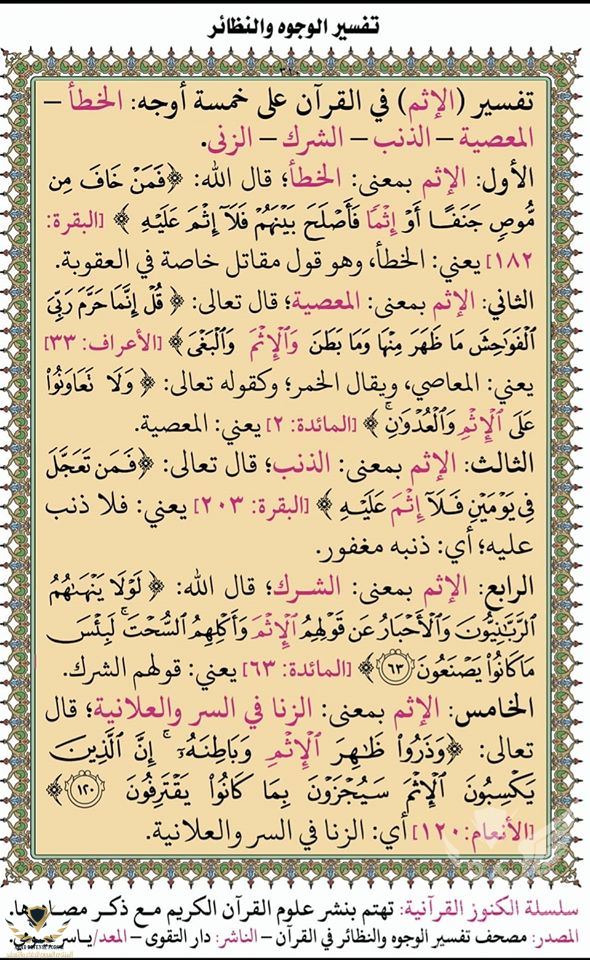 تفسير الوجوه والنظائر
تفسير (الإثم) في القرآن على خمسة أوجه: الخطأ –
المعصية – الذنب – الشرك – الزنى.
الأول: الإثم بمعنى: الخطأ؛ قال الله: ﴿فَمَنْ خَافَ مِن
مُّوصٍ جَنَفًا أَوْ إِثْمًا فَأَصْلَحَ بَيْنَهُمْ فَلَآ إِثْمَ عَلَيْهِ ﴾ [البقرة:
١٨٢] يعني: الخطأ، وهو قول مقاتل خاصة في العقوبة.
الثاني: الإثم بمعنى: المعصية؛ قال تعالى: ﴿ قُلْ إِنَّمَا حَرَّمَ رَبِّيَ
ٱلْفَوَٰحِشَ مَا ظَهَرَ مِنْهَا وَمَا بَطَنَ وَٱلْإِثْمَ وَٱلْبَغْىَ﴾ [الأعراف: ٣٣]
يعني: المعاصي، ويقال الخمر؛ وكقوله تعالى: ﴿ وَلَا تَعَاوَنُوا۟
عَلَى ٱلْإِثْمِ وَٱلْعُدْوَٰنِ ۚ ﴾ [المائدة: ٢] يعني: المعصية.
الثالث: الإثم بمعنى: الذنب؛ قال تعالى: ﴿فَمَن تَعَجَّلَ
فِى يَوْمَيْنِ فَلَآ إِثْمَ عَلَيْهِ ﴾ [البقرة: ٢٠٣] يعني: فلا ذنب
عليه؛ أي: ذنبه مغفور.
الرابع: الإثم بمعنى: الشرك؛ قال الله: ﴿ لَوْلَا يَنْهَىٰهُمُ
ٱلرَّبَّـٰنِيُّونَ وَٱلْأَحْبَارُ عَن قَوْلِهِمُ ٱلْإِثْمَ وَأَكْلِهِمُ ٱلسُّحْتَ ۚ لَبِئْسَ
مَا كَانُوا۟ يَصْنَعُونَ ٦٣ ﴾ [المائدة: ٦٣] يعني: قولهم الشرك.
الخامس: الإثم بمعنى: الزنا في السر والعلانية؛ قال
تعالى: ﴿وَذَرُوا۟ ظَـٰهِرَ ٱلْإِثْمِ وَبَاطِنَهُۥٓ ۚ إِنَّ ٱلَّذِينَ
يَكْسِبُونَ ٱلْإِثْمَ سَيُجْزَوْنَ بِمَا كَانُوا۟ يَقْتَرِفُونَ ١٢٠﴾
[الأنعام:١٢٠] أي: الزنا في السر والعلانية.
سلسلة الكنوز القرآنية: تهتم بنشر علوم القرآن الكريم مع ذكر مصادرها.
المصدر: مصحف تفسير الوجوه والنظائر في القرآن – الناشر: دار التقوى – المعد/